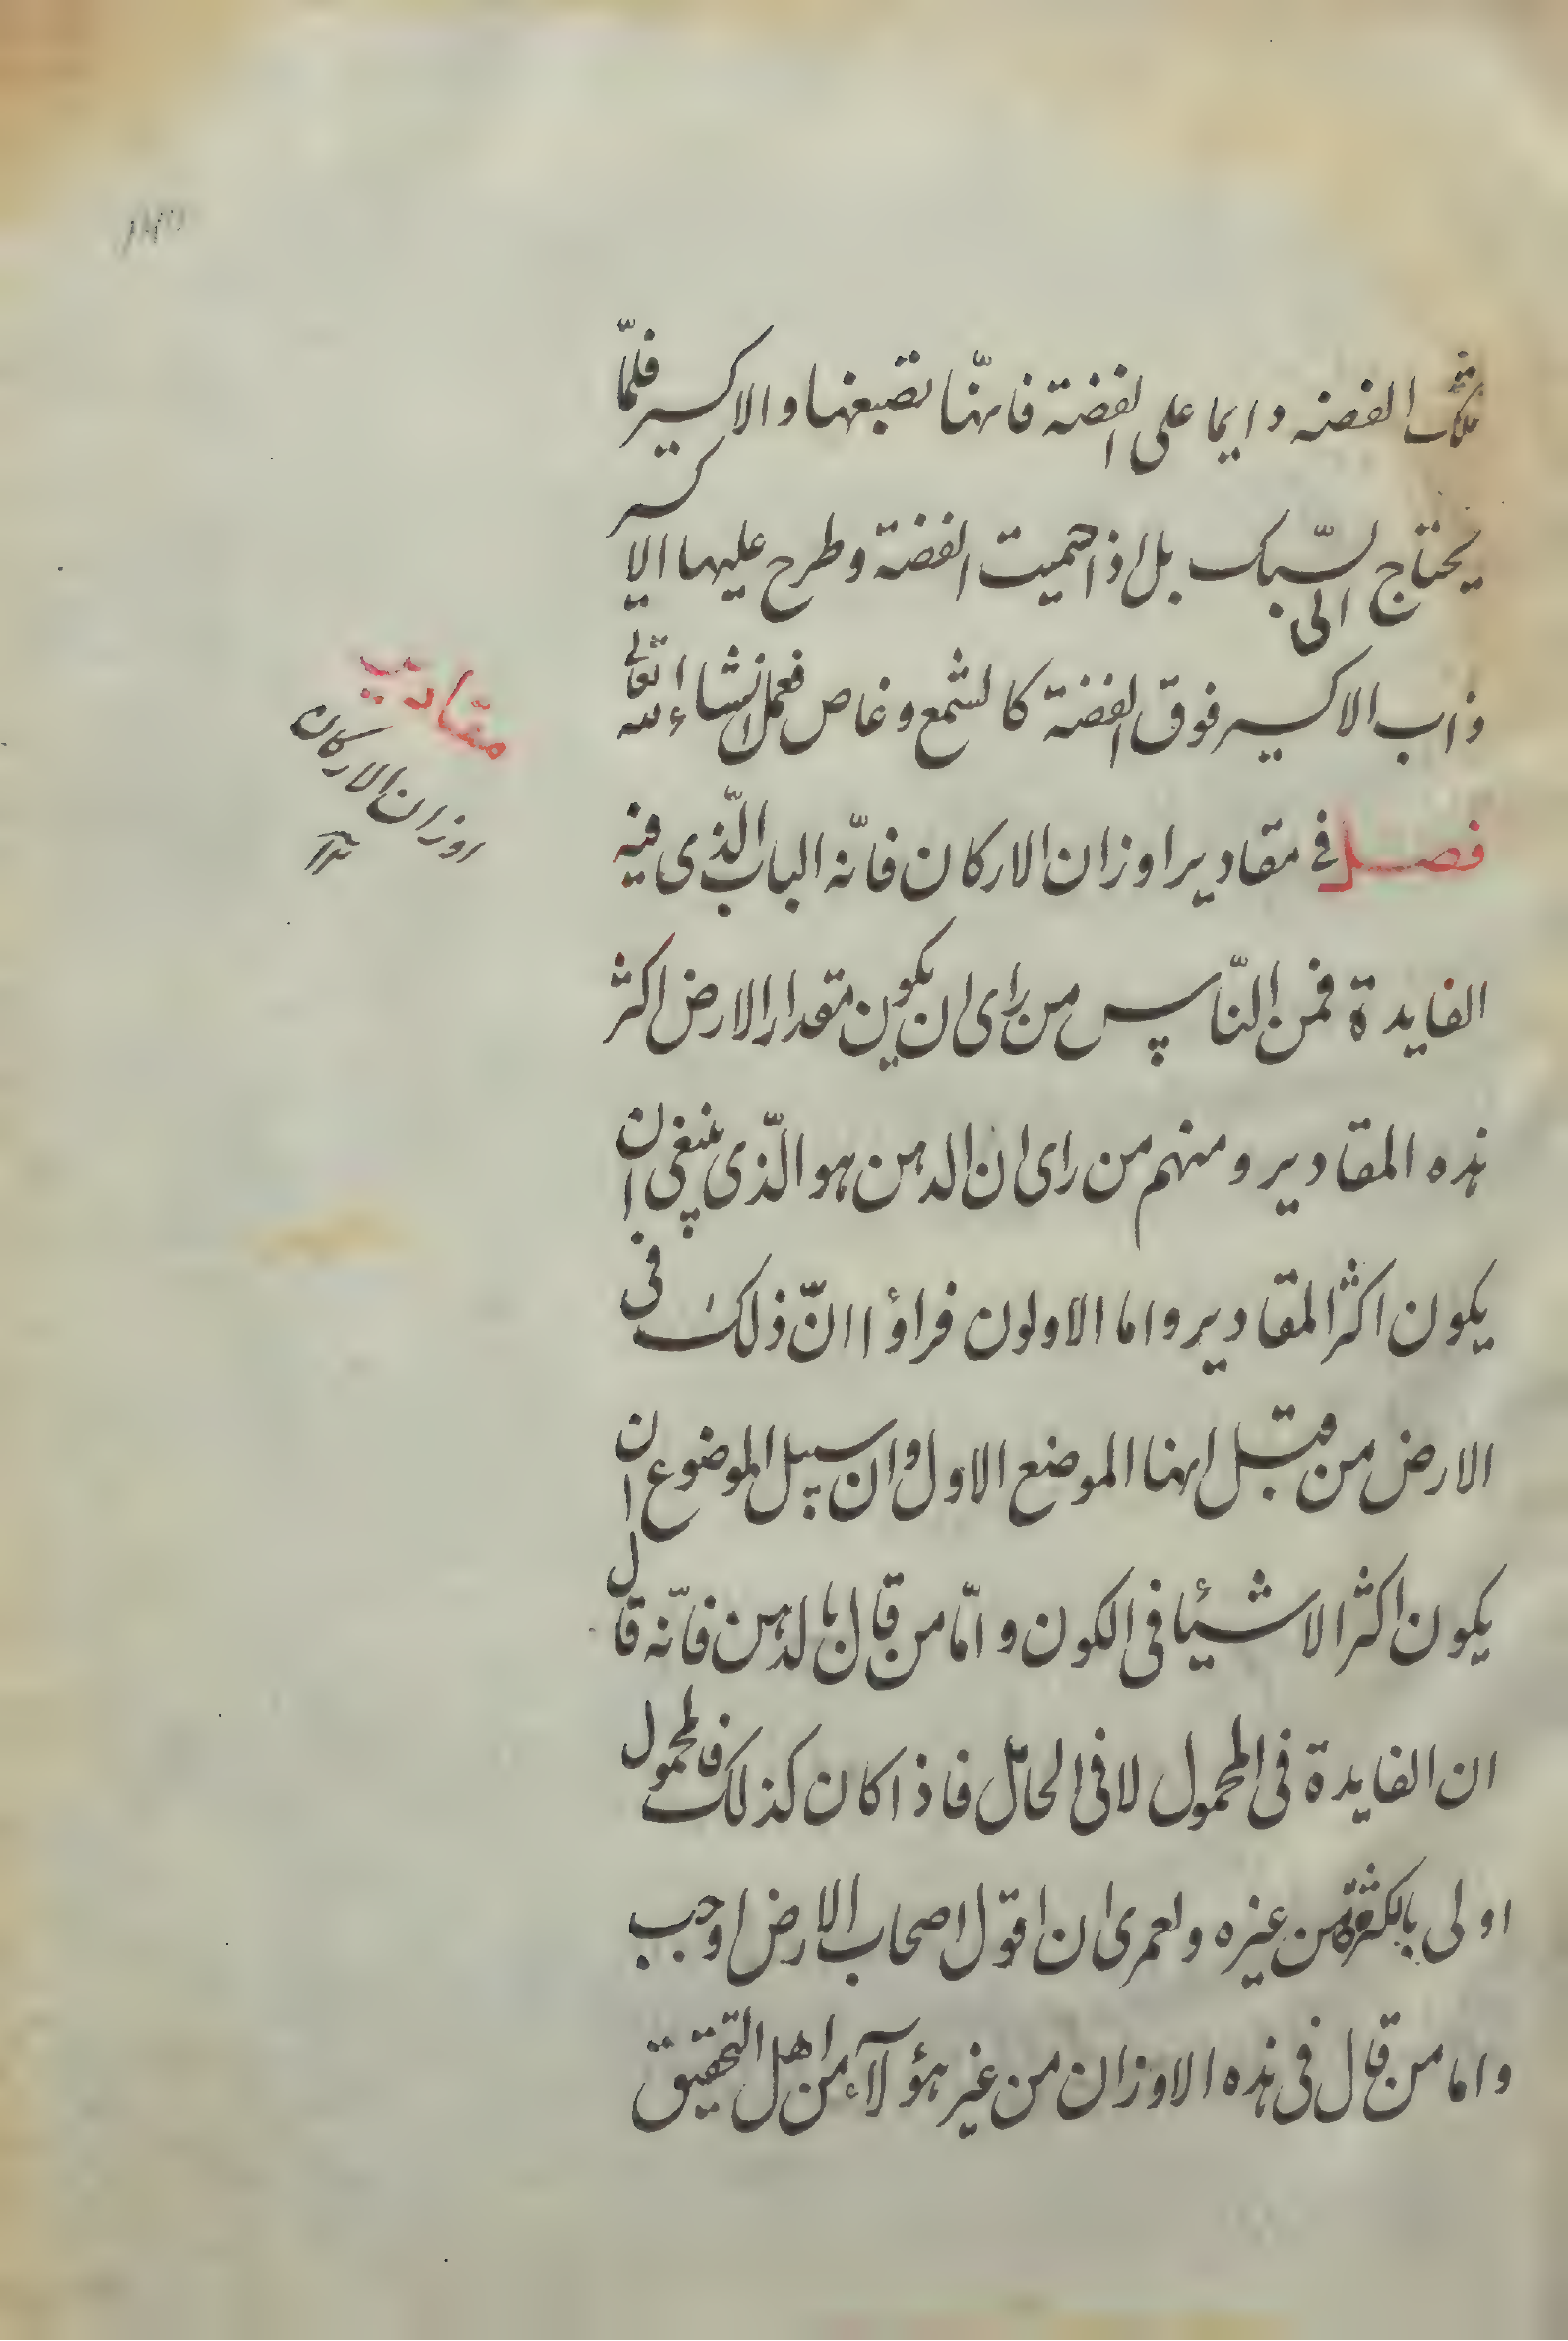 الفضه دايما على الفضة فانهّا تصبغها والاكسير فلمّا
يحتاج الى السّبك بل اذا حميت الفضة وطرح عليها الاكسير
ذاب الاكسير فوق الفضة كالشمع وغاص فعمل انشاء الله تعالى
فصل فى مقادير اوزان الاركان فانّه الباب الّذى فيه
الفايدة فمن النّاس من راى ان يكون مقدار الارض اكثر
هذه المقادير ومنهم من راى ان الدهن هو الّذى ينبغى ان
يكون اكثر المقادير واما الاولون فراؤا انّ ذلك فى
الارض من قبل انها الموضع الاول وان سبيل الموضوع ان
يكون اكثر الاشيئا فى الكون وامّا من قال بالدهن فانّه قال
ان الفايدة فى المحمول لا فى الحامل فاذا كان كذلك فالمحمول
اولى بالكثرة من غيره ولعمرى ان اقول اصحاب الارض اوجب
واما من قال فى هذه الاوزان من غير هؤلآء من اهل التحقيق
مقادير
اوزان الاركان